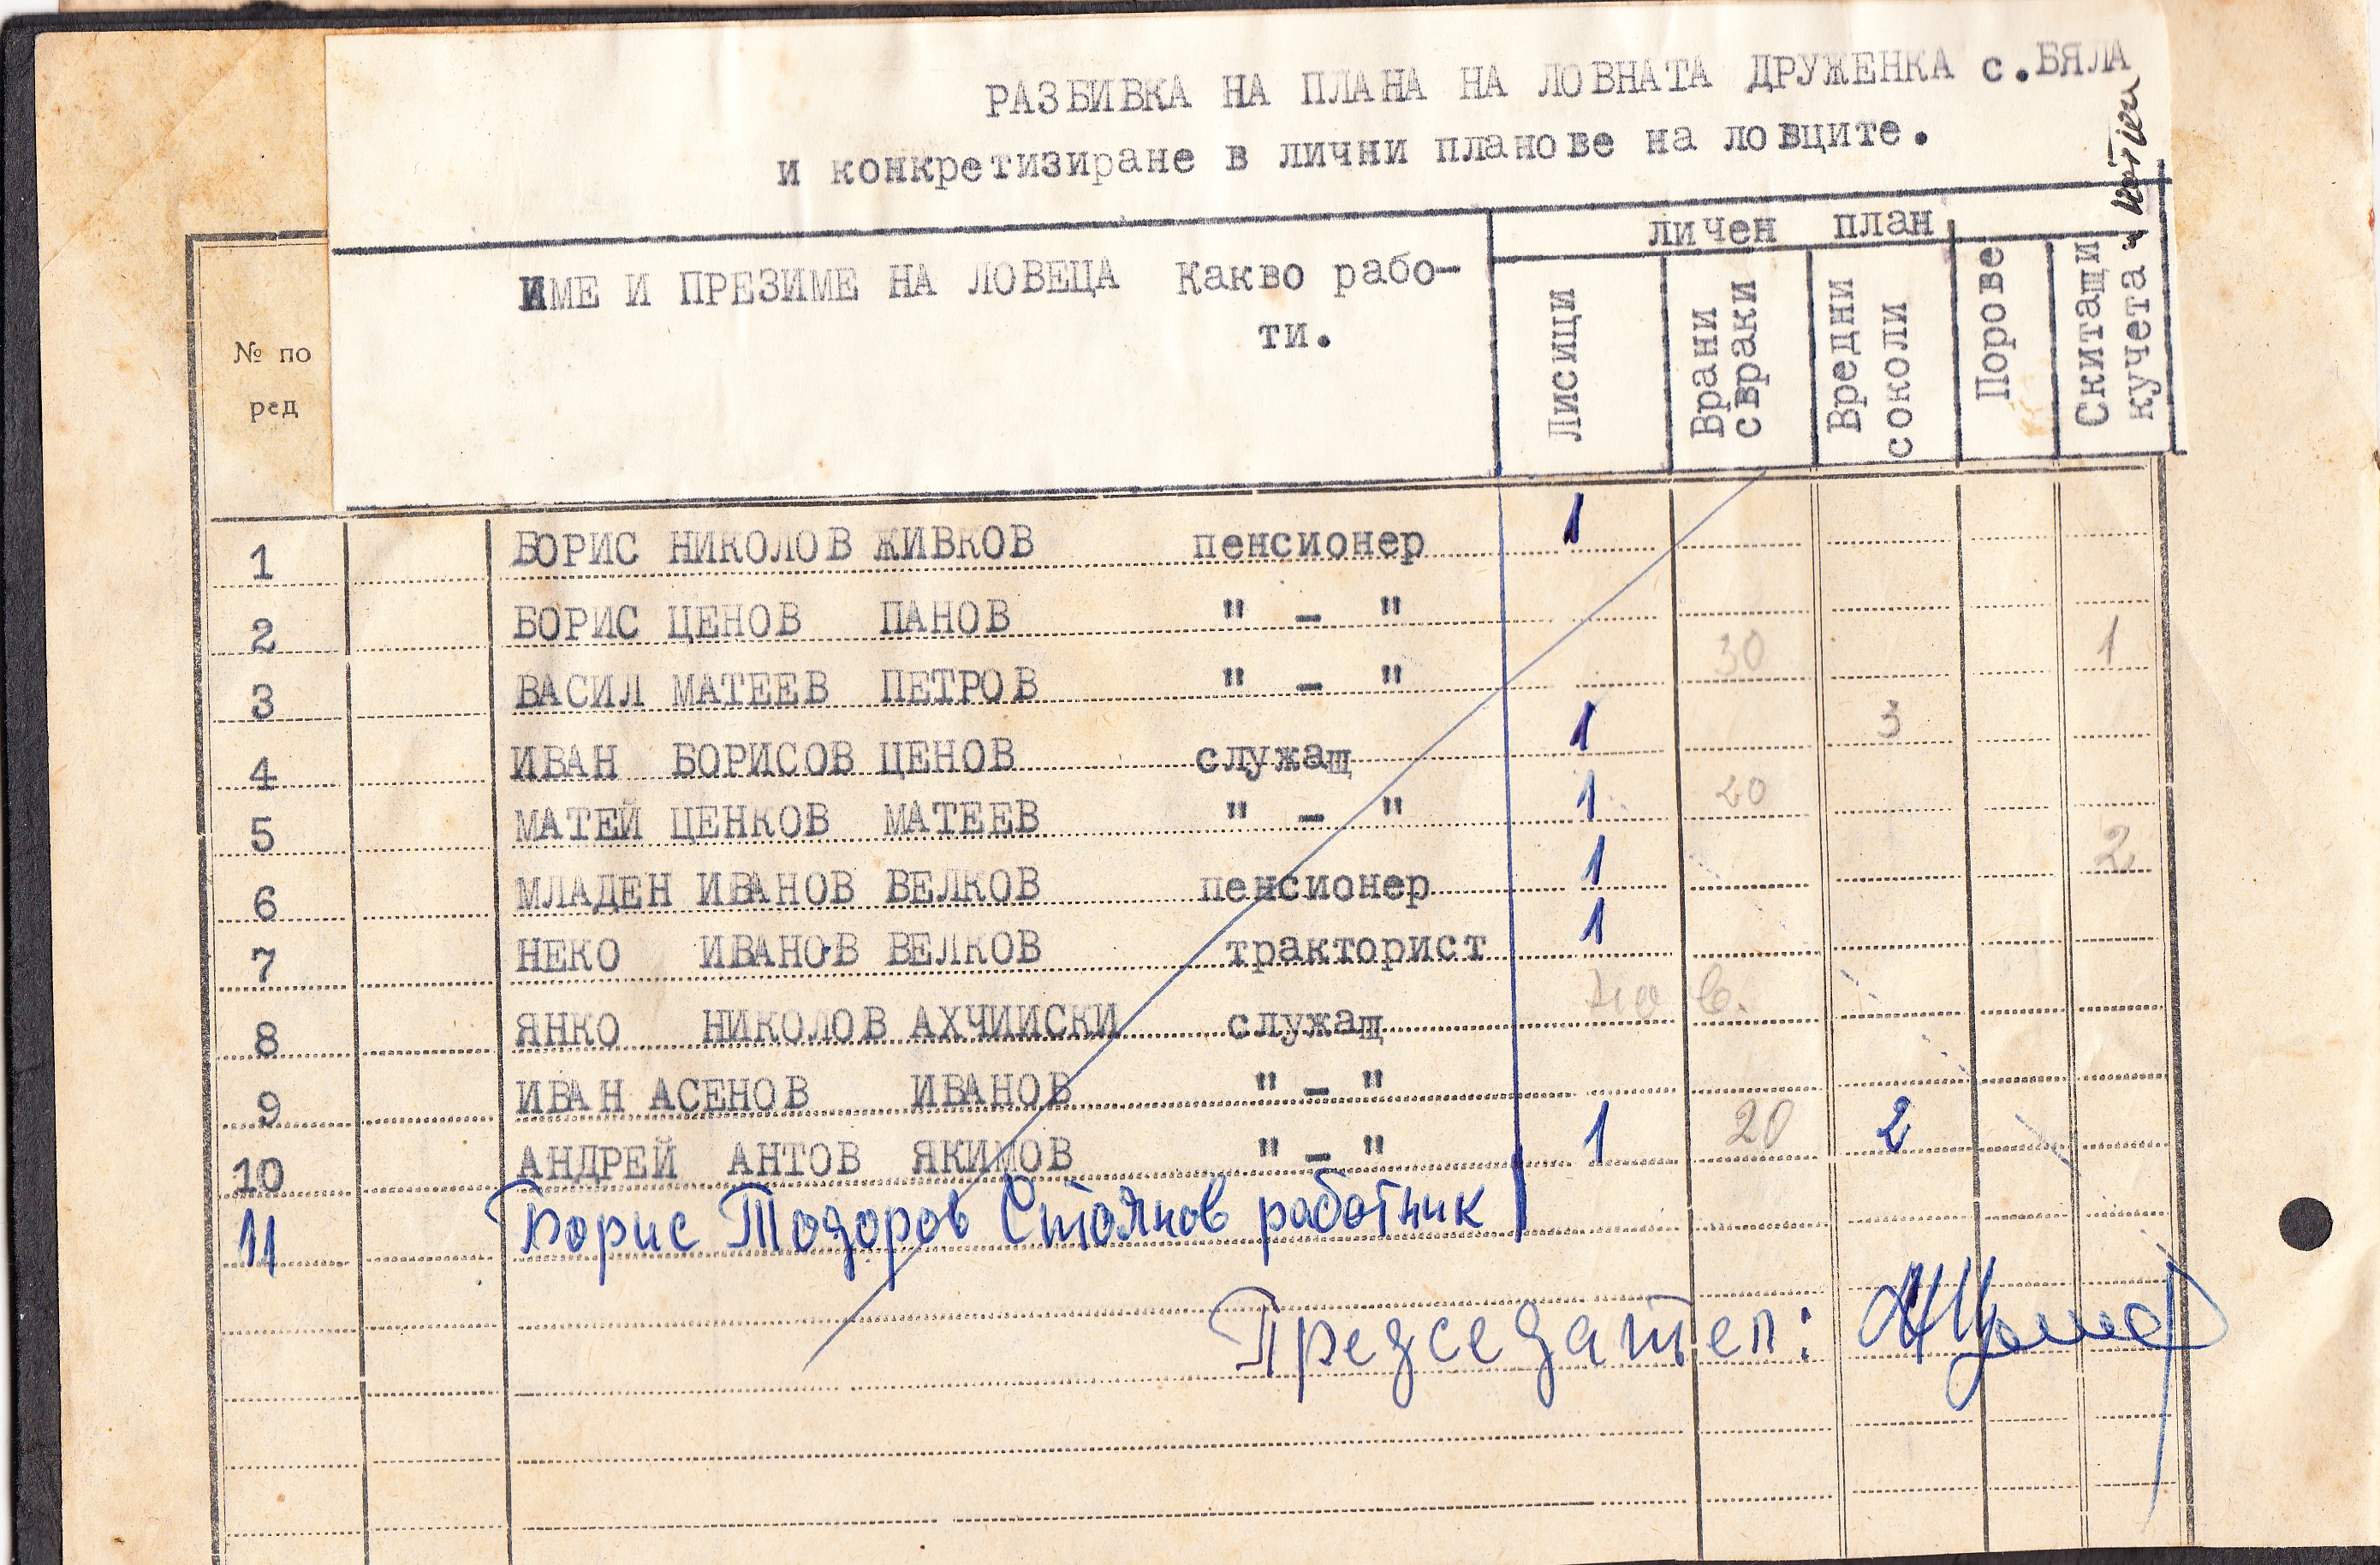 РАЗБИВКА НА ПЛАНА НА ЛОВНАТА ДРУЖЕНКА с.БЯЛА
и конкретизиране в лични планове на ловците.
№ по ред
ИМЕ И ПРЕЗИМЕ НА ЛОВЕЦА Какво рабо-
ти.
личен план
Лисици
Врани
свраки
Вредни
соколи
Порове
Скитащи
кучета и котки
1 БОРИС НИКОЛОВ ЖИВКОВ пенсионер 1
2 БОРИС ЦЕНОВ ПАНОВ " – "
3 ВАСИЛ МАТЕЕВ ПЕТРОВ " – " 30 1
4 ИВАН БОРИСОВ ЦЕНОВ служащ 1 3
5 МАТЕЙ ЦЕНКОВ МАТЕЕВ " – " 1 20
6 МЛАДЕН ИВАНОВ ВЕЛКОВ пенсионер 1 2
7 НЕКО ИВАНОВ ВЕЛКОВ тракторист 1
8 ЯНКО НИКОЛОВ АХЧИИСКИ служащ
9 ИВАН АСЕНОВ ИВАНОВ " – "
10 АНДРЕЙ АНТОВ ЯКИМОВ " – " 1 20 2
11 Борис Тодоров Стоянов работник
Председател: